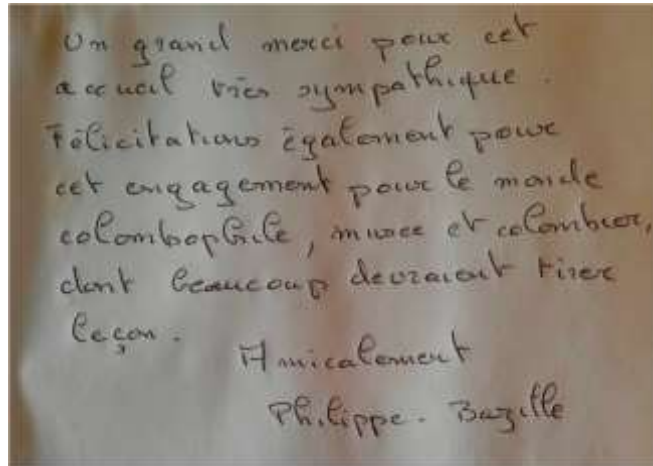 Un grand merci pour cet
accueil très sympathique.
Félicitations également pour
cet engagement pour le monde
colombophile, musée et colombier,
dont beaucoup devraient tirer
leçon.
Amicalement
Philippe. Bazille